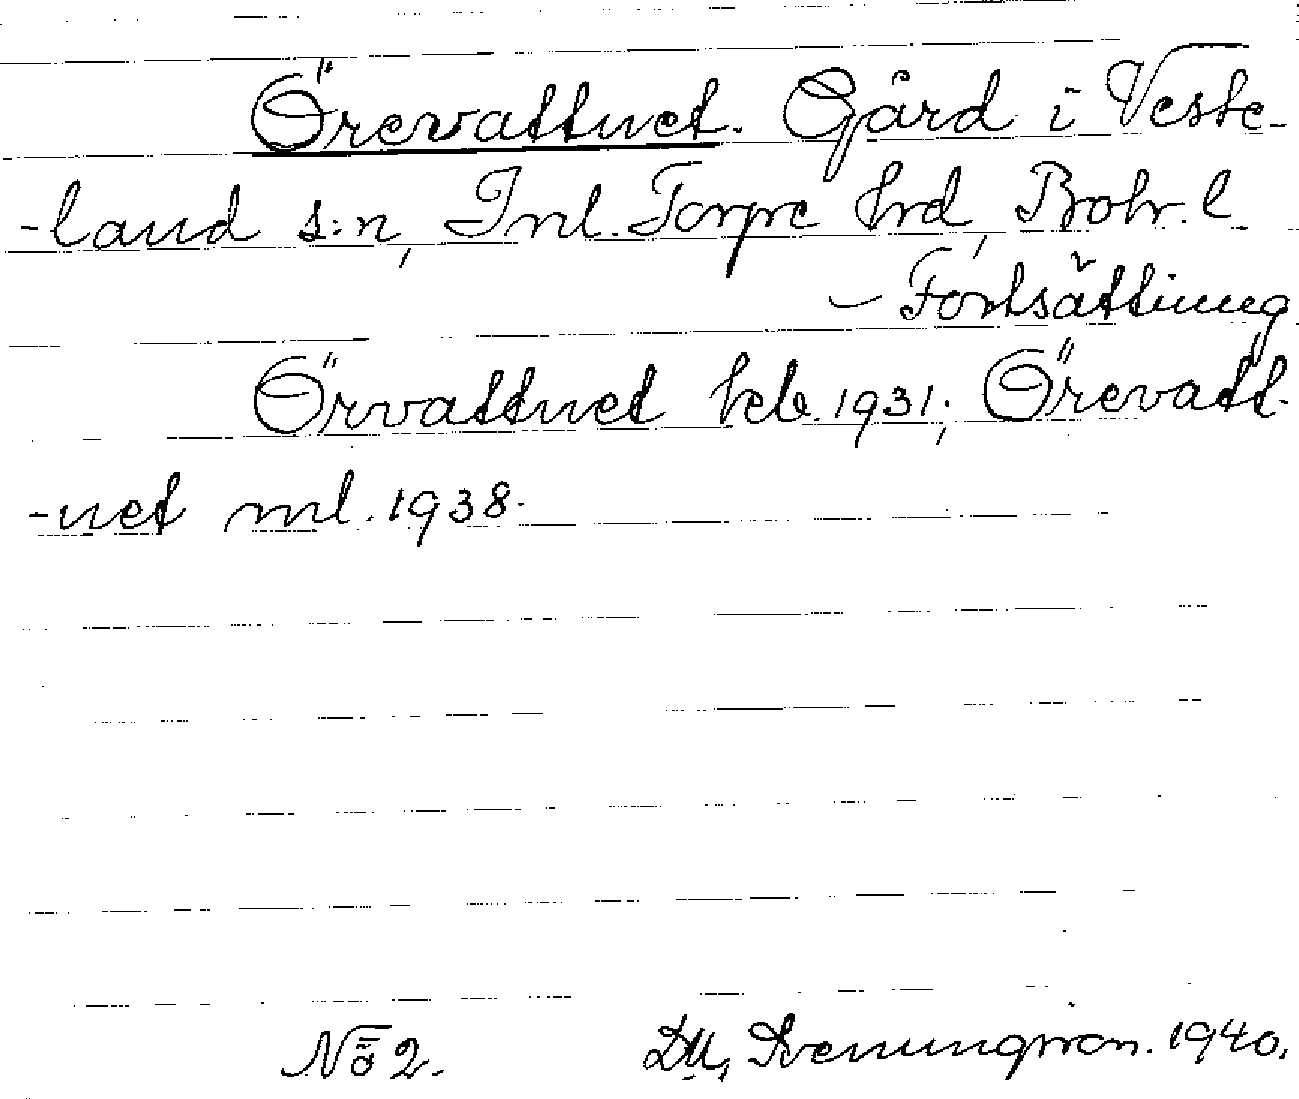 Örevattnet. Gård i Veste-
-land s:n, Inl. Torpe hrd, Bohr. l
- Fortsättning
Örvattnet heb. 1931; Örevatt-
-net ml. 1938.
No 2. D.M. Svenungsson. 1940.